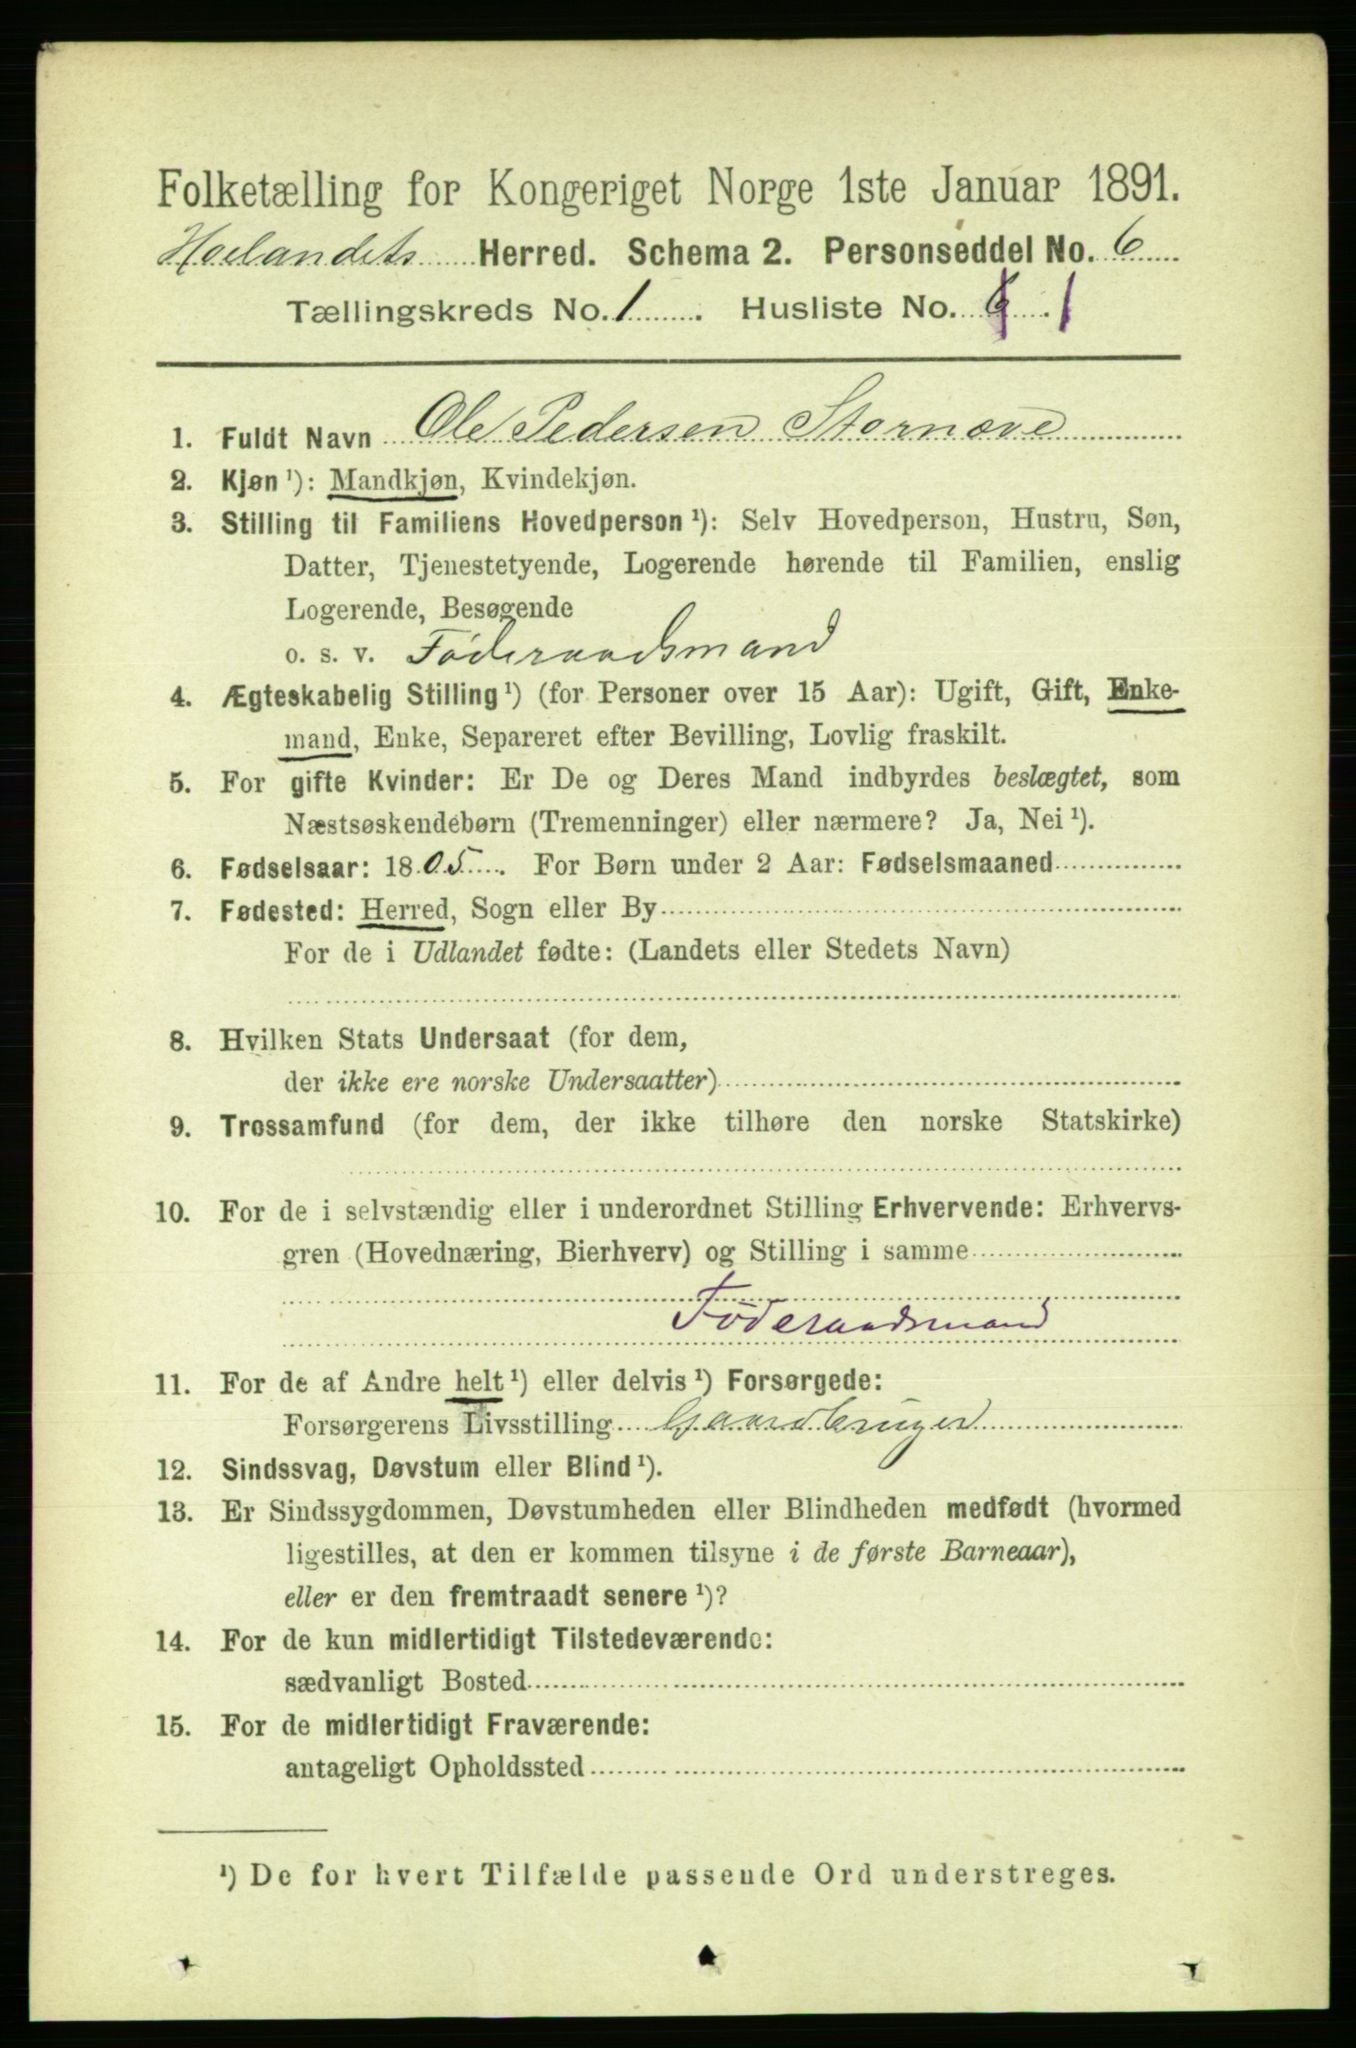 Folketælling for Kongeriget Norge 1ste Januar 1891.
Hølandets Herred. Schema 2. Personseddel No. 6
Tællingskreds No. 1. Husliste No. 1
1. Fuldt Navn Ole Pedersen Stornæve
2. Kjøn ¹): Mandkjøn, Kvindekjøn.
3. Stilling til Familiens Hovedperson ¹): Selv Hovedperson, Hustru, Søn,
Datter, Tjenestetyende, Logerende hørende til Familien, enslig
Logerende, Besøgende
o. s. v. Føderaadsmand
4. Ægteskabelig Stilling ¹) (for Personer over 15 Aar): Ugift, Gift, Enke-
mand, Enke, Separeret efter Bevilling, Lovlig fraskilt.
5. For gifte Kvinder: Er De og Deres Mand indbyrdes beslægtet, som
Næstsøskendebørn (Tremenninger) eller nærmere? Ja, Nei ¹).
6. Fødselsaar: 1805. For Børn under 2 Aar: Fødselsmaaned
7. Fødested: Herred, Sogn eller By
For de i Udlandet fødte: (Landets eller Stedets Navn)
8. Hvilken Stats Undersaat (for dem,
der ikke ere norske Undersaatter)
9. Trossamfund (for dem, der ikke tilhøre den norske Statskirke)
10. For de i selvstændig eller i underordnet Stilling Erhvervende: Erhvervs-
gren (Hovednæring, Bierhverv) og Stilling i samme
Føderaadsmand
11. For de af Andre helt ¹) eller delvis ¹) Forsørgede:
Forsørgerens Livsstilling Gaardbruger
12. Sindssvag, Døvstum eller Blind ¹).
13. Er Sindssygdommen, Døvstumheden eller Blindheden medfødt (hvormed
ligestilles, at den er kommen tilsyne i de første Barneaar),
eller er den fremtraadt senere ¹)?
14. For de kun midlertidigt Tilstedeværende:
sædvanligt Bosted
15. For de midlertidigt Fraværende:
antageligt Opholdssted
¹) De for hvert Tilfælde passende Ord understreges.